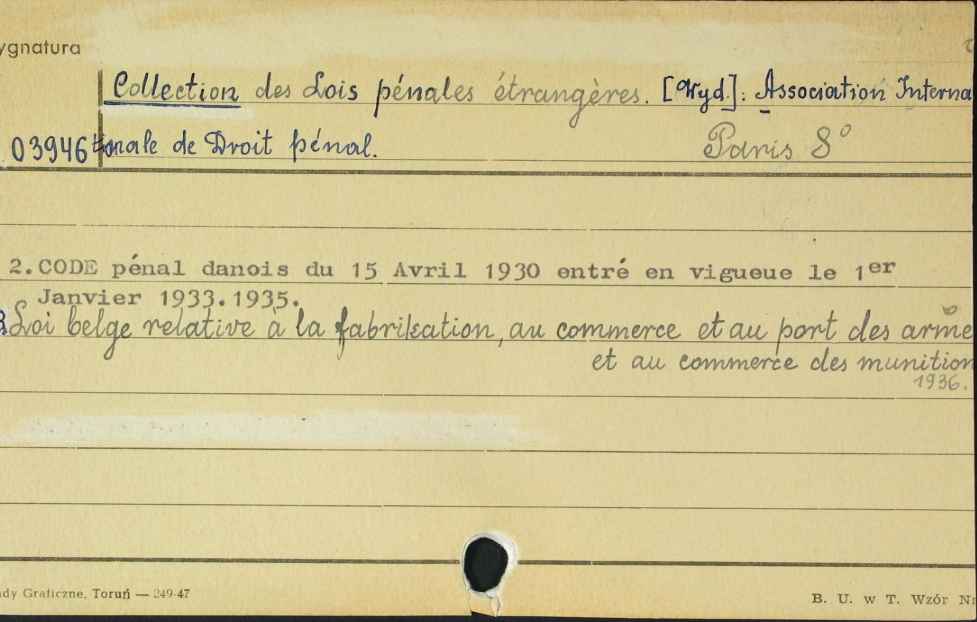 ygnatura
Collection des Lois pénales étrangères. [Wyd.]: Association Interna
03946 tionale de Droit pénal. Paris 8°
2. CODE pénal danois du 15 Avril 1930 entré en vigueue le 1er
Janvier 1933.1935.
3 Loi belge relative à la fabrikation, au commerce et au port des arme
et au commerce des munition
1936.
ady Graficzne, Toruń — 249-47
B. U. w T. Wzór Nr